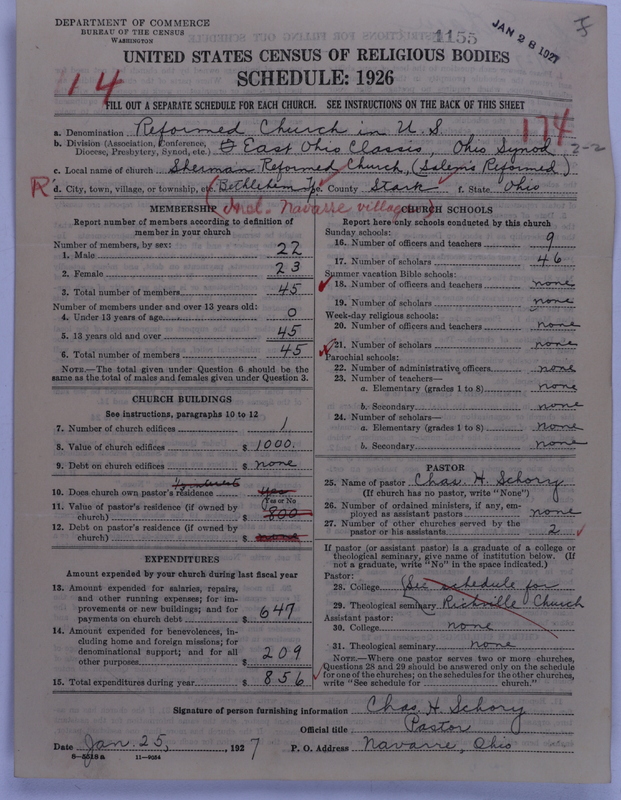 DEPARTMENT OF COMMERCE
BUREAU OF THE CENSUS
WASHINGTON
1155
JAN 28 1927
UNITED STATES CENSUS OF RELIGIOUS BODIES
SCHEDULE: 1926
114
FILL OUT A SEPARATE SCHEDULE FOR EACH CHURCH. SEE INSTRUCTIONS ON THE BACK OF THIS SHEET
174
a. Denomination Reformed Church in U.S.
b. Division (Association, Conference, Diocese, Presbytery, Synod, etc.) East Ohio Classis, Ohio Synod 2-2
c. Local name of church Sherman Reformed Church, (Salem's Reformed)
R d. City, town, village, or township, etc. Bethlehem Tp e. County Stark f. State Ohio
(Incl. Navarre village)
MEMBERSHIP
Report number of members according to definition of
member in your church
Number of members, by sex:
1. Male 22
2. Female 23
3. Total number of members 45
Number of members under and over 13 years old:
4. Under 13 years of age 0
5. 13 years old and over 45
6. Total number of members 45
NOTE.—The total given under Question 6 should be the
same as the total of males and females given under Question 3.
CHURCH BUILDINGS
See instructions, paragraphs 10 to 12
7. Number of church edifices 1
8. Value of church edifices $ 1000.
9. Debt on church edifices $ none
10. Does church own pastor's residence yes
Yes or No
11. Value of pastor's residence (if owned by
church) $ 800
12. Debt on pastor's residence (if owned by
church) $ none
EXPENDITURES
Amount expended by your church during last fiscal year
13. Amount expended for salaries, repairs,
and other running expenses; for im-
provements or new buildings; and for
payments on church debt $ 647
14. Amount expended for benevolences, in-
cluding home and foreign missions; for
denominational support; and for all
other purposes $ 209
15. Total expenditures during year $ 856
CHURCH SCHOOLS
Report here only schools conducted by this church
Sunday schools:
16. Number of officers and teachers 9
17. Number of scholars 46
Summer vacation Bible schools:
18. Number of officers and teachers none
19. Number of scholars none
Week-day religious schools:
20. Number of officers and teachers none
21. Number of scholars none
Parochial schools:
22. Number of administrative officers none
23. Number of teachers—
a. Elementary (grades 1 to 8) none
b. Secondary none
24. Number of scholars—
a. Elementary (grades 1 to 8) none
b. Secondary none
PASTOR
25. Name of pastor Chas. H. Schory
(If church has no pastor, write "None")
26. Number of ordained ministers, if any, em-
ployed as assistant pastors none
27. Number of other churches served by the
pastor or his assistants 2
If pastor (or assistant pastor) is a graduate of a college or
theological seminary, give name of institution below. (If
not a graduate, write "No" in the space indicated.)
Pastor:
28. College (See schedule for
29. Theological seminary Richville Church
Assistant pastor:
30. College none
31. Theological seminary none
NOTE.—Where one pastor serves two or more churches,
Questions 28 and 29 should be answered only on the schedule
for one of the churches; on the schedules for the other churches,
write "See schedule for church."
Signature of person furnishing information Chas. H. Schory
Official title Pastor
Date Jan. 25, 1927 P. O. Address Navarre, Ohio
8-5518a 11-9064